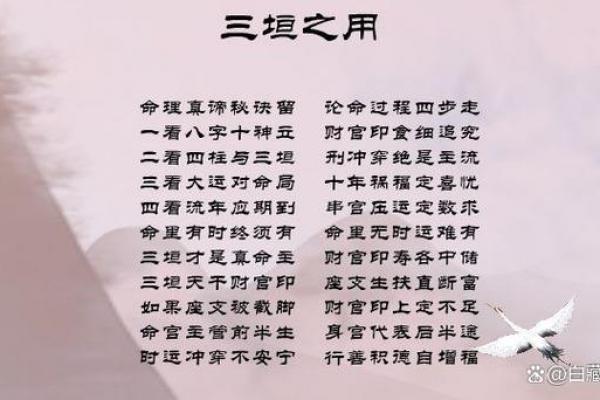 三垣之用
命理真谛秘诀留 论命过程四步走
一看八字十神立 财官印食细追究
二看四柱与三垣 刑冲穿绝是主流
三看大运对命局 十年祸福定喜忧
四看流年应期到 串宫压运定数求
命里有时终须有 命里无时运难有
三垣才是真命主 财官印寿各中储
三垣天干财官印 座支生扶直断富
如果座支被截脚 财官印上定不足
命宫主管前半生 身宫代表后半途
时运冲穿不安宁 行善积德自增福
@白藏